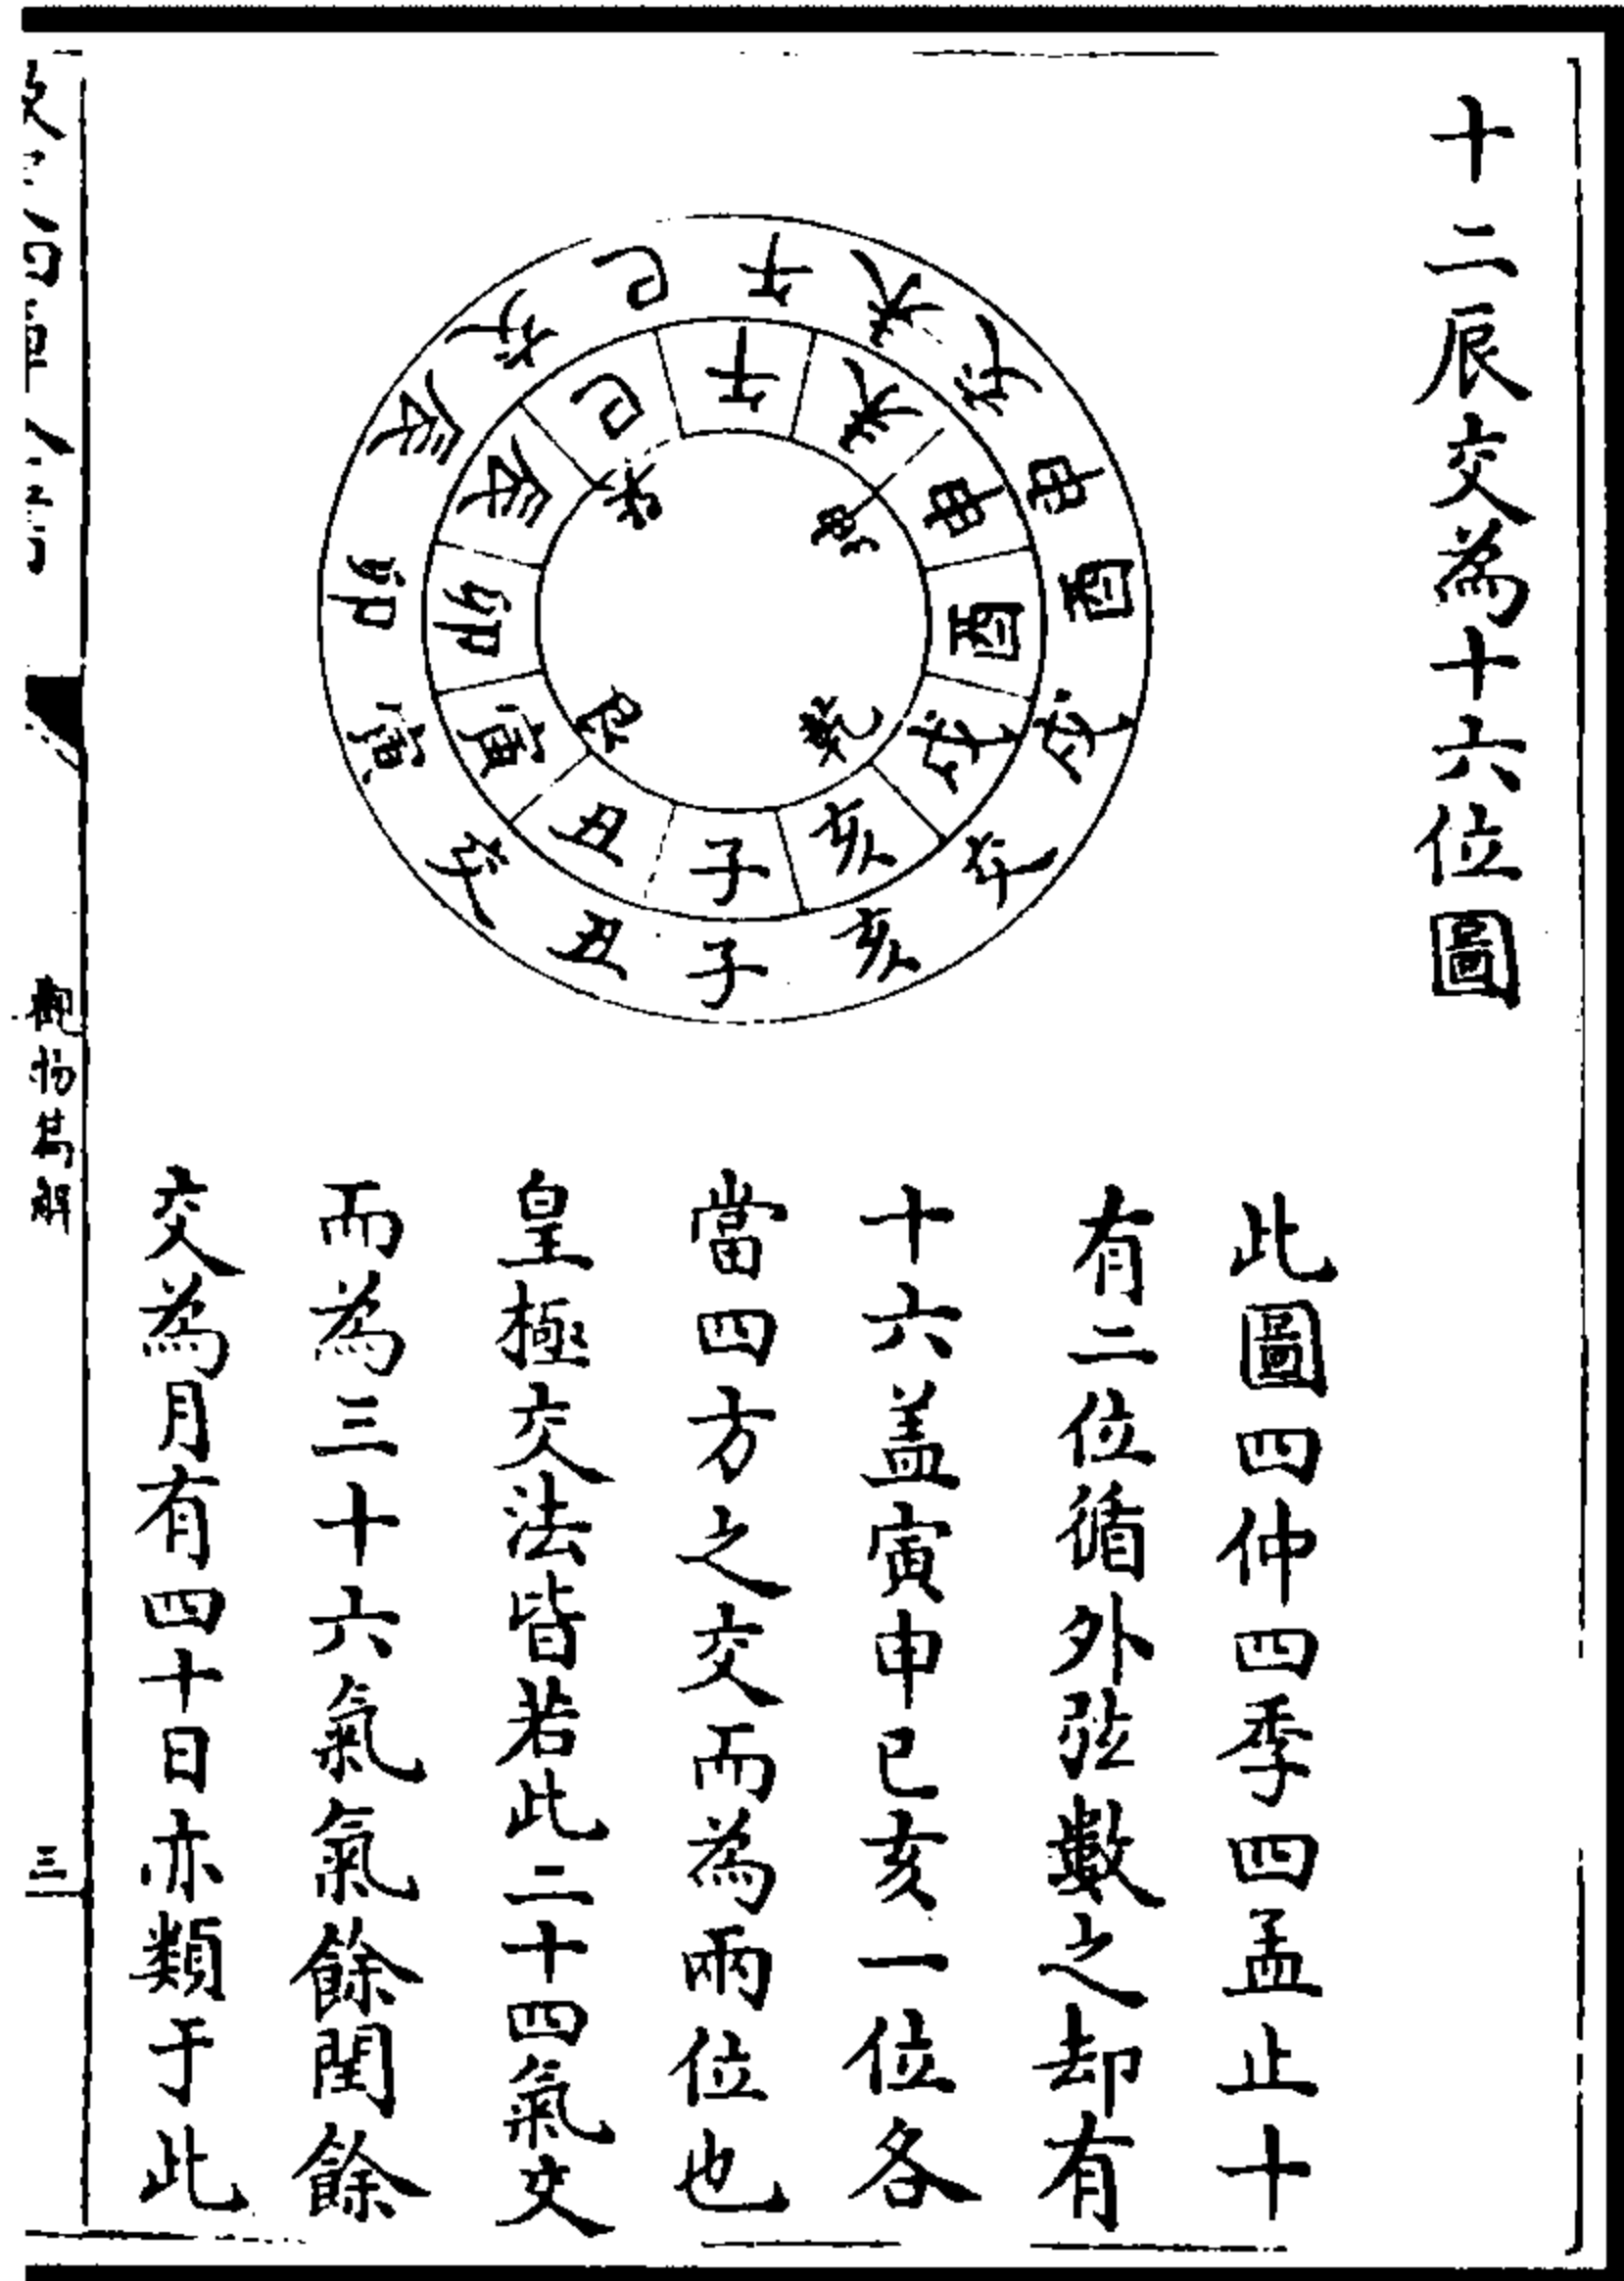 十二辰交為十六位圖
子丑寅卯辰巳午未申酉戌亥
子丑寅卯辰巳午未申酉戌亥
艮巽坤乾
此圖四仲四季四孟止十
有二位循外弦數之却有
十六盖寅申巳亥一位各
當四方之交而為兩位也
皇極交法皆若此二十四氣交
而為三十六氣氣餘閏餘
交為月有四十日亦類于此
觀物篇解
三